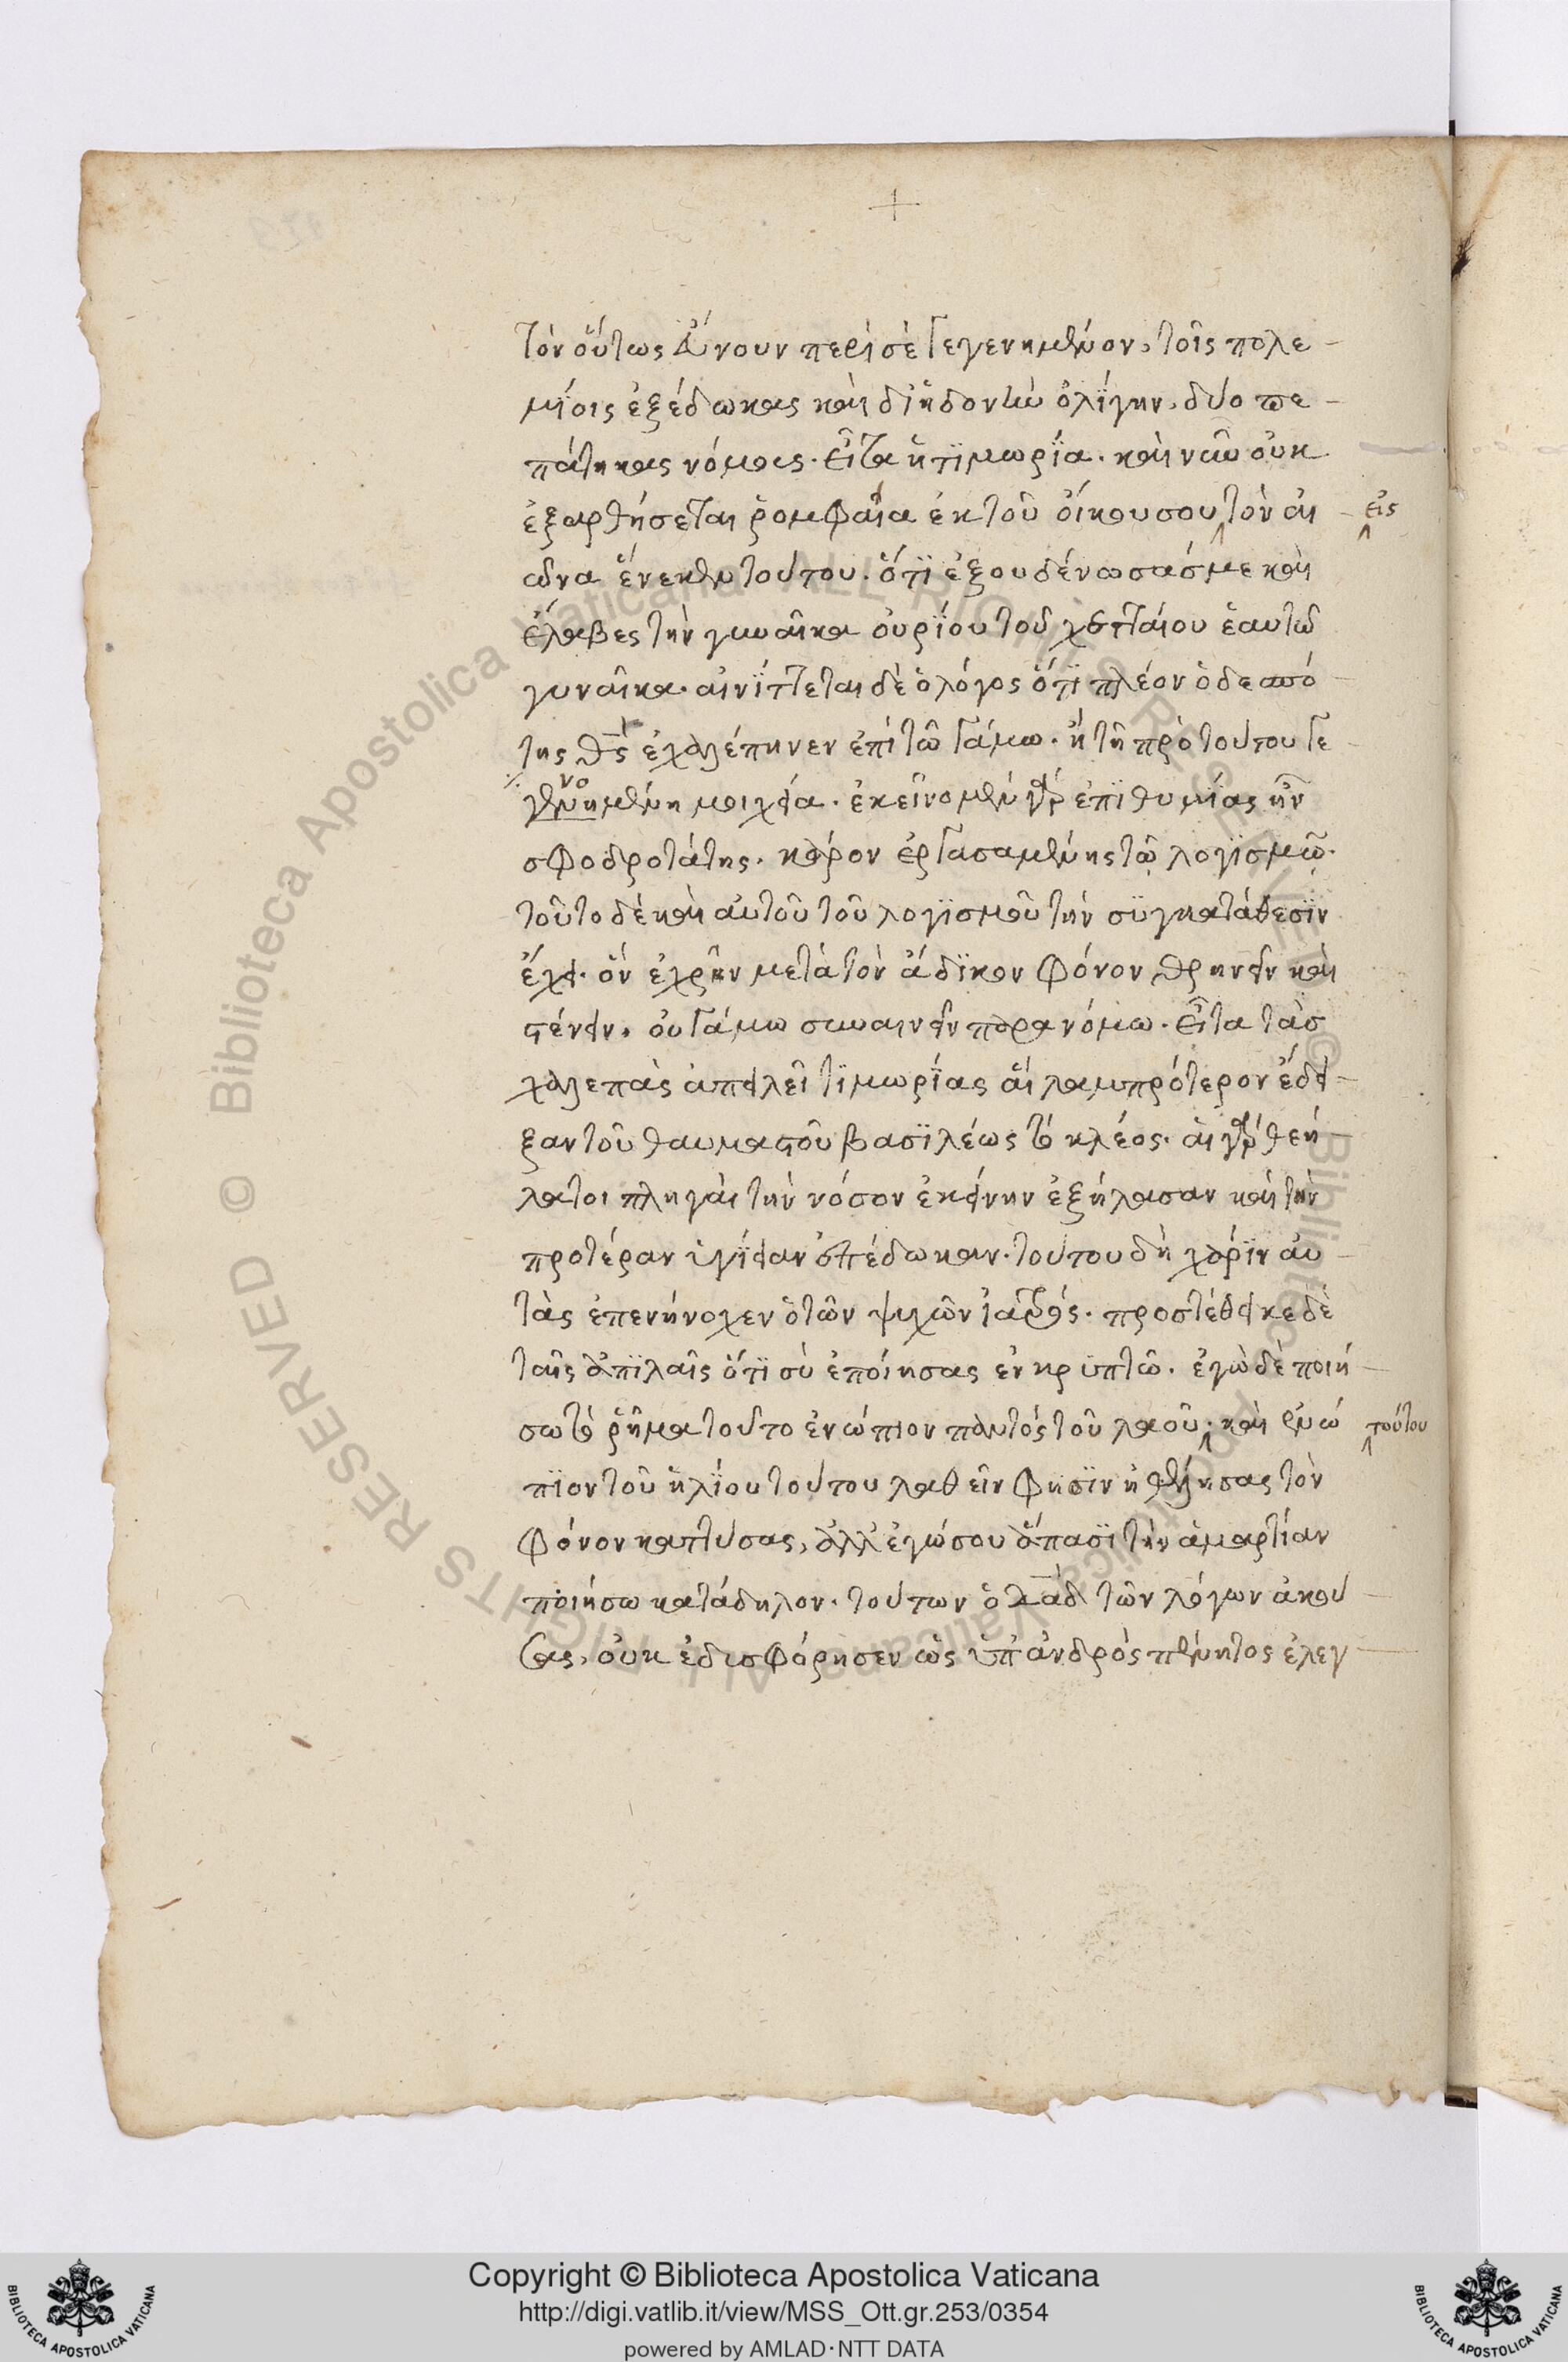 τὸν οὕτως εὔνουν περὶ σὲ γεγενημένον, τοῖς πολε-
μίοις ἐξέδωκας καὶ δι' ἡδονὴν ὀλίγην, δύο πε-
πάτηκας νόμους. εἶτα ἡ τιμωρία. καὶ νῦν οὐκ
ἐξαρθήσεται ῥομφαία ἐκ τοῦ οἴκου σου ‸ τὸν αἰ- ‸ εἰς
ῶνα ἕνεκεν τούτου. ὅτι ἐξουδένωσάς με καὶ
ἔλαβες τὴν γυναῖκα οὐρίου τοῦ χετταίου ἑαυτῶ
γυναῖκα. αἰνίττεται δὲ ὁ λόγος ὅτι πλέον ὁ δεσπό-
της θς ἐχαλέπηνεν ἐπὶ τῶ γάμω. ἢ τῆ πρὸ τούτου γε-
γενημένη μοιχεία. ἐκεῖνο μὲν γὰρ ἐπιθυμίας ἦν
σφοδροτάτης. κόρον ἐργασαμένης τῶ λογισμῶ.
τοῦτο δὲ καὶ αὐτοῦ τοῦ λογισμοῦ τὴν συγκατάθεσιν
ἔχει. ὃν ἐχρῆν μετὰ τὸν ἄδικον φόνον θρηνεῖν καὶ
στένειν, οὐ γάμω συναινεῖν παρανόμω. εἶτα τὰσ
χαλεπὰς ἀπειλεῖ τιμωρίας αἳ λαμπρότερον ἔδει-
ξαν τοῦ θαυμαστοῦ βασιλέως τὸ κλέος. αἱ γὰρ θεή-
λατοι πληγαὶ τὴν νόσον ἐκείνην ἐξήλασαν καὶ τὴν
προτέραν ὑγίειαν ἀπέδωκαν. τούτου δὴ χάριν αὐ-
τὰς ἐπενήνοχεν ὁ τῶν ψυχῶν ἰατρός. προστέθεικε δὲ
ταῖς ἀπιλαῖς ὅτι σὺ ἐποίησας ἐν κρυπτῶ. ἐγὼ δὲ ποιή-
σω τὸ ῥῆμα τοῦτο ἐνώπιον παντὸς τοῦ λαοῦ ‸. καὶ ἐνώ- ‸ τούτου
πιον τοῦ ἡλίου τούτου λαθεῖν φησιν ἠθέλησας τὸν
φόνον καττύσας, ἀλλ' ἐγώ σου ἅπασι τὴν ἁμαρτίαν
ποιήσω κατάδηλον. τούτων ὁ δαδ τῶν λόγων ἀκού-
σας, οὐκ ἐδυσφόρησεν ὡς ὑπ' ἀνδρὸς πένητος ἐλεγ-
Copyright © Biblioteca Apostolica Vaticana
http://digi.vatlib.it/view/MSS_Ott.gr.253/0354
powered by AMLAD·NTT DATA